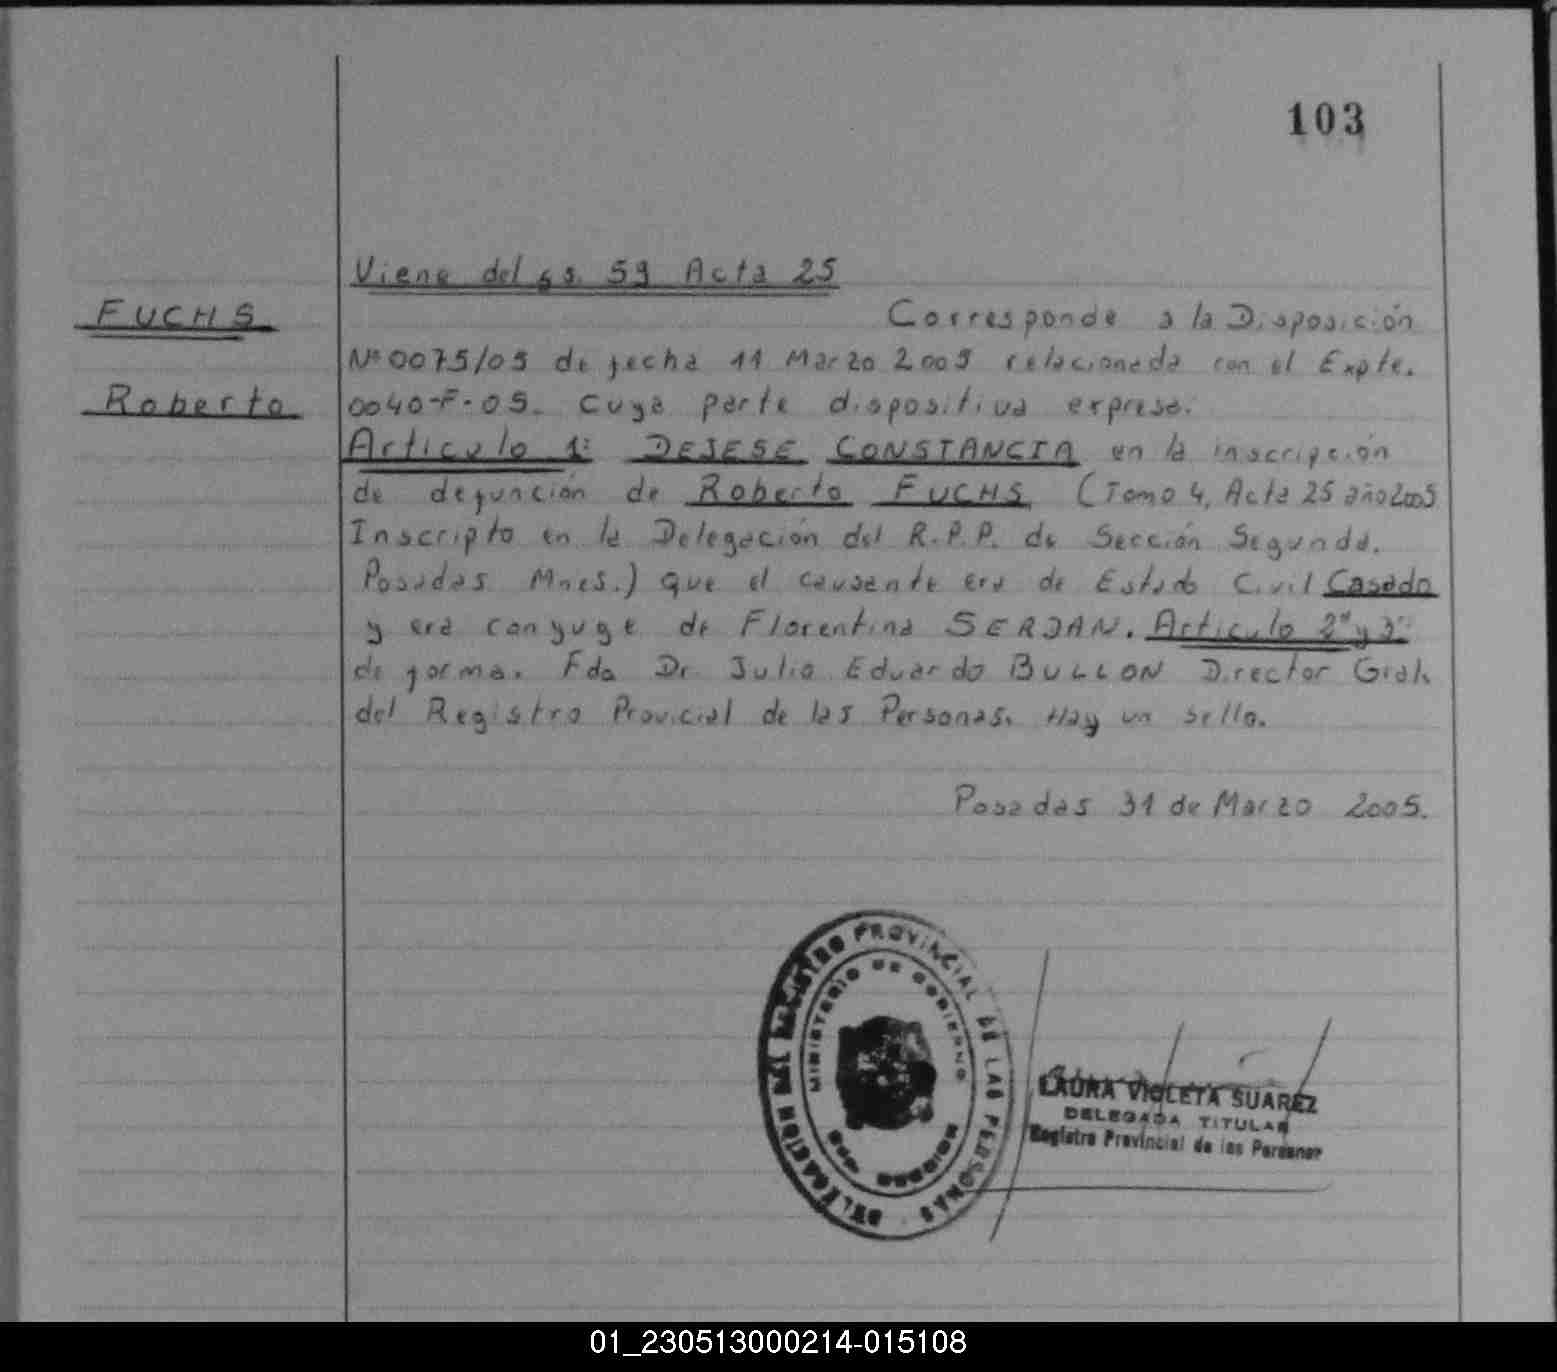 103
Viene del fs. 59 Acta 25
FUCHS
Corresponde a la Disposición
Nº 0075/05 de fecha 11 Marzo 2005 relacionada con el Expte.
Roberto
0040-F-05. Cuya parte dispositiva expresa:
Articulo 1º DEJESE CONSTANCIA en la inscripción
de defunción de Roberto FUCHS (Tomo 4, Acta 25 año 2005
Inscripto en la Delegación del R.P.P. de Sección Segunda.
Posadas Mnes.) que el causante era de Estado Civil Casado
y era conyuge de Florentina SERJAN. Articulo 2º y 3º
de forma. Fdo Dr. Julio Eduardo BULLON Director Gral.
del Registro Provicial de las Personas. Hay un sello.
Posadas 31 de Marzo 2005.
DELEGACION DEL REGISTRO PROVINCIAL DE LAS PERSONAS
MINISTERIO DE GOBIERNO
LAURA VIOLETA SUAREZ
DELEGADA TITULAR
Registro Provincial de las Personas
01_230513000214-015108